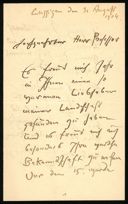 Lussigen den 30 August
1904
Hochgeehrter Herr Professor
Es freut mich sehr
in Ihnen einen so
warmen Liebhaber
meiner Landschaft
gefunden zu haben
und es freut mich
besonders Ihre werthe
Bekanntschaft zu machen
Vor dem 15. werde